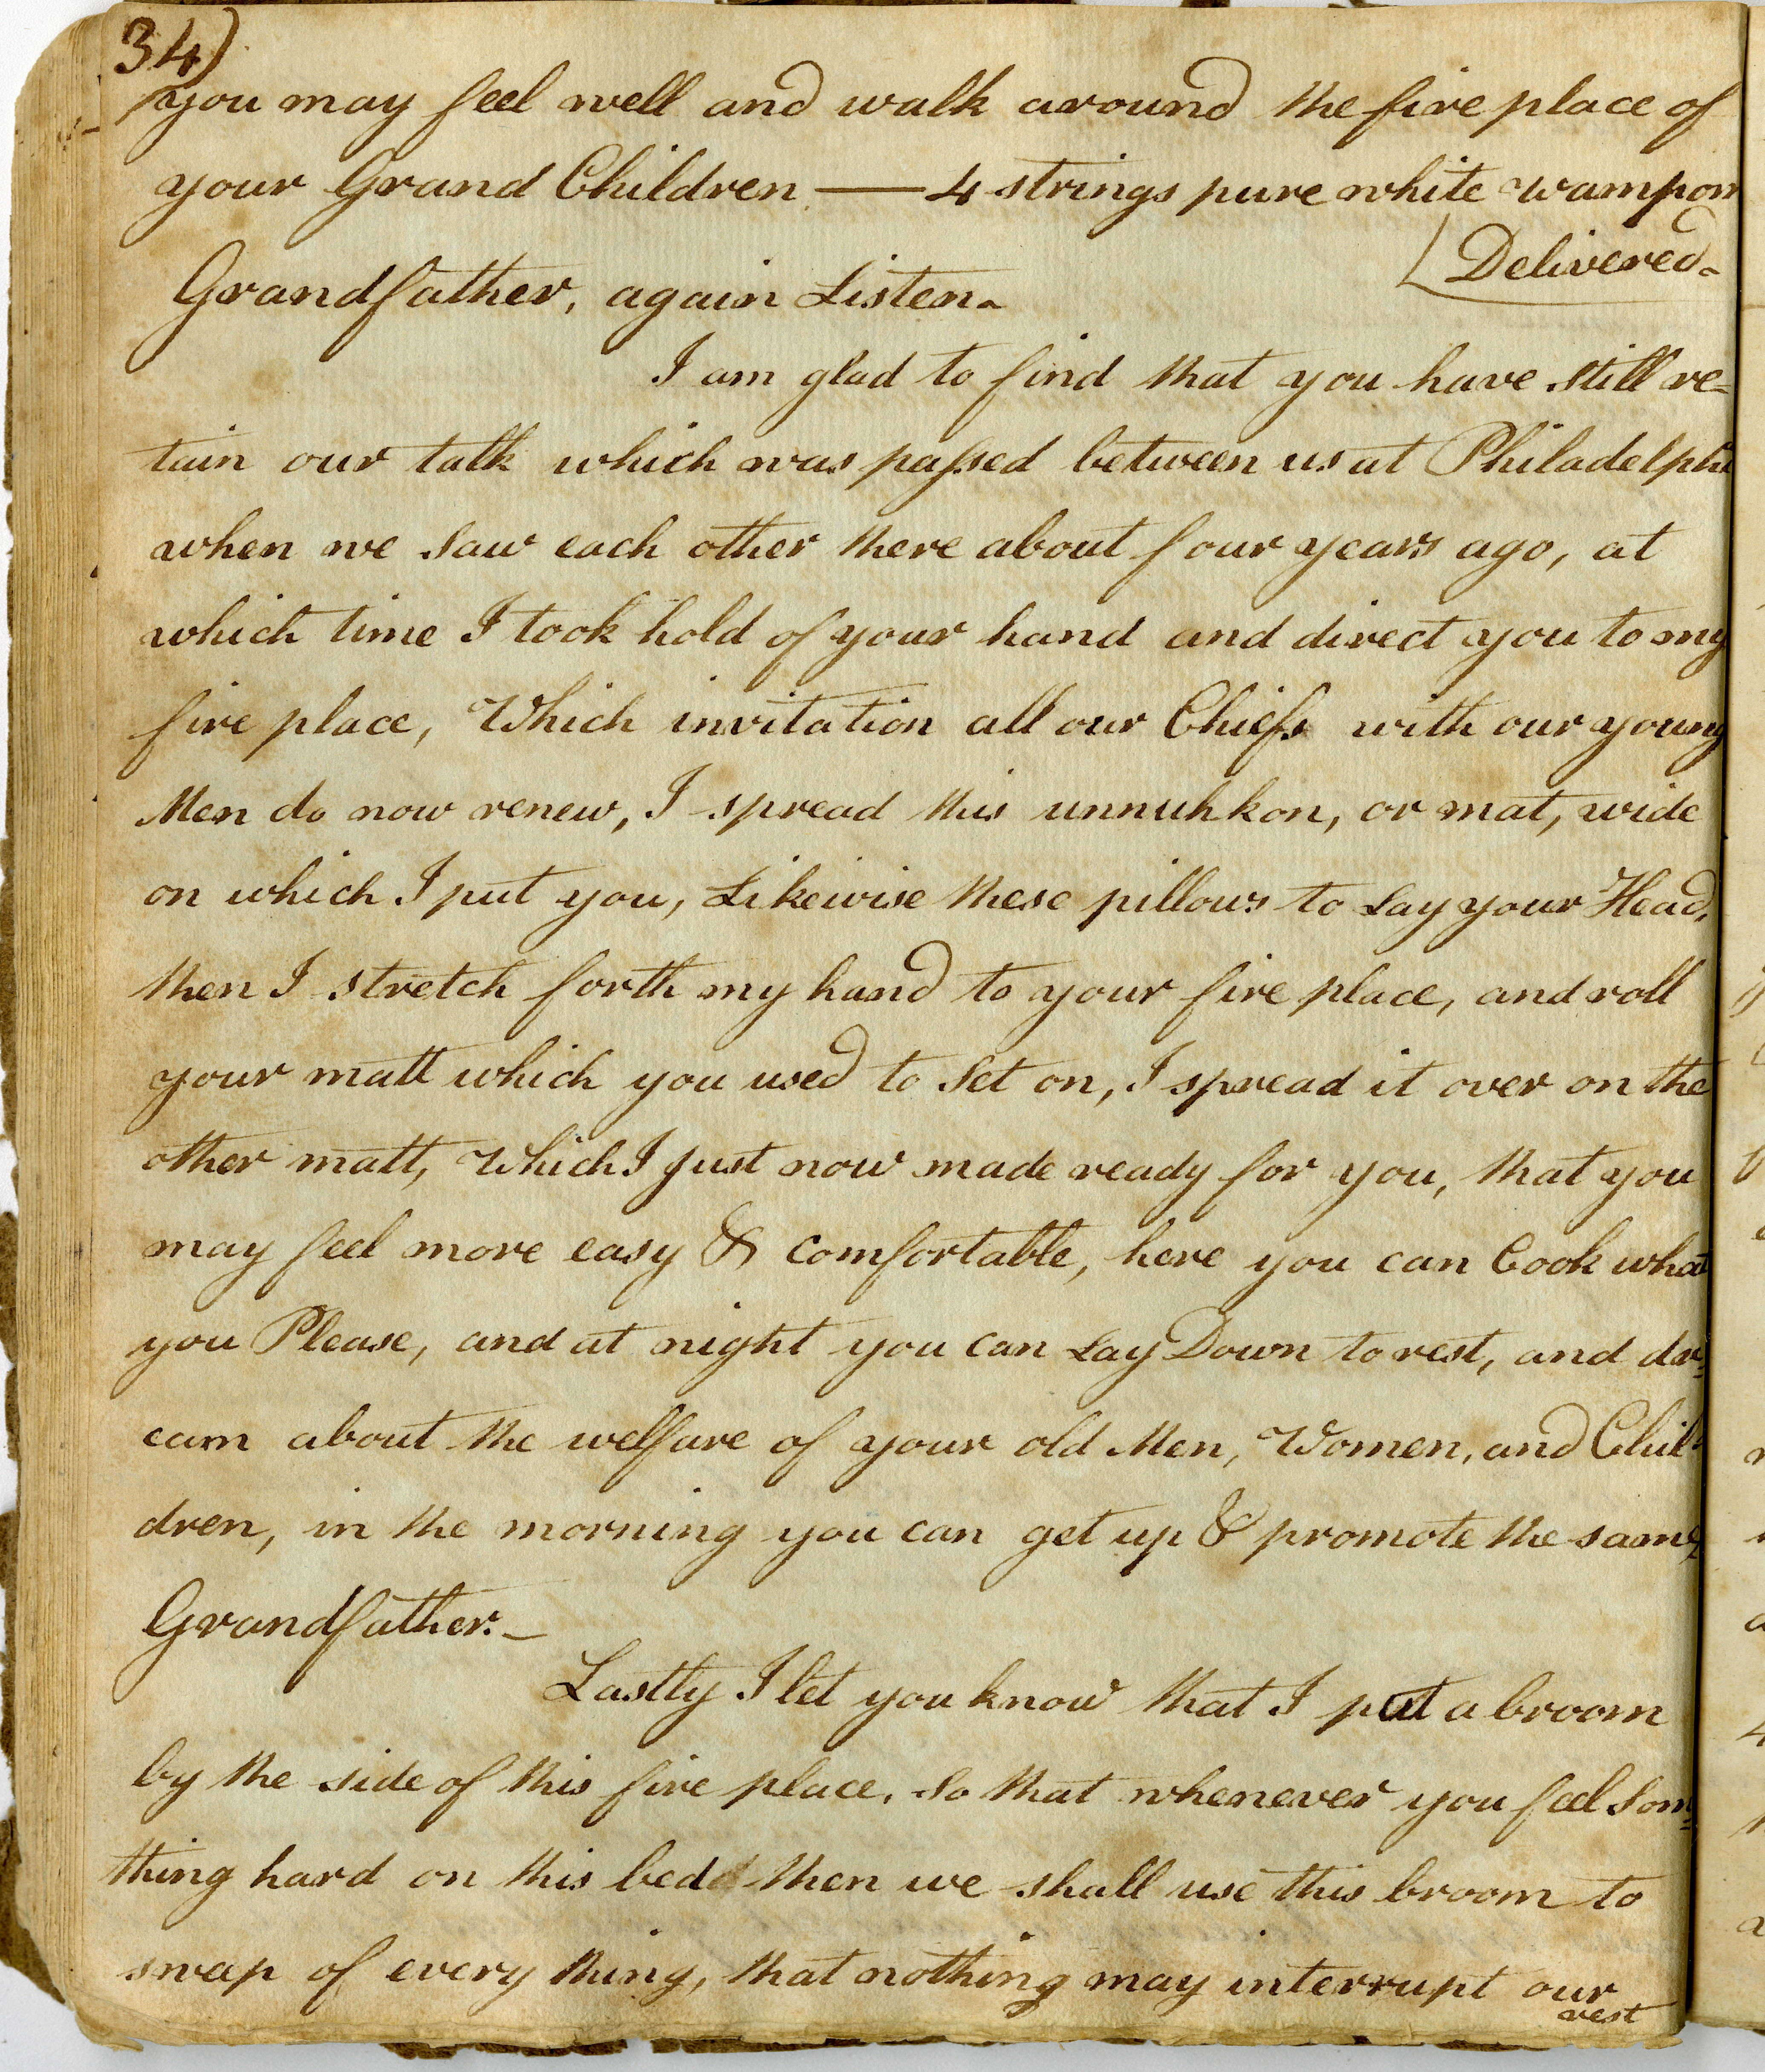 34)
you may feel well and walk around the fire place of
your Grand Children — 4 strings pure white wampom
Delivered.
Grandfather, again Listen.
I am glad to find that you have still re=
tain our talk which was passed between us at Philadelphi
when we saw each other there about four years ago, at
which time I took hold of your hand and direct you to my
fire place, Which invitation all our Chiefs with our young
Men do now renew, I spread this unnuhkon, or mat, wide
on which I put you, Likewise these pillows to Lay your Head,
then I stretch forth my hand to your fire place, and roll
your matt which you used to Set on, I spread it over on the
other matt, Which I just now made ready for you, that you
may feel more easy & comfortable, here you can Cook what
you Please, and at night you can Lay Down to rest, and dr=
eam about the welfare of your old Men, Women, and Chil=
dren, in the morning you can get up & promote the same,
Grandfather. —
Lastly I let you know that I put a broom
by the side of this fire place, So that whenever you feel Som=
thing hard on this bed then we shall use this broom to
sweap of every thing, that nothing may interrupt our
rest